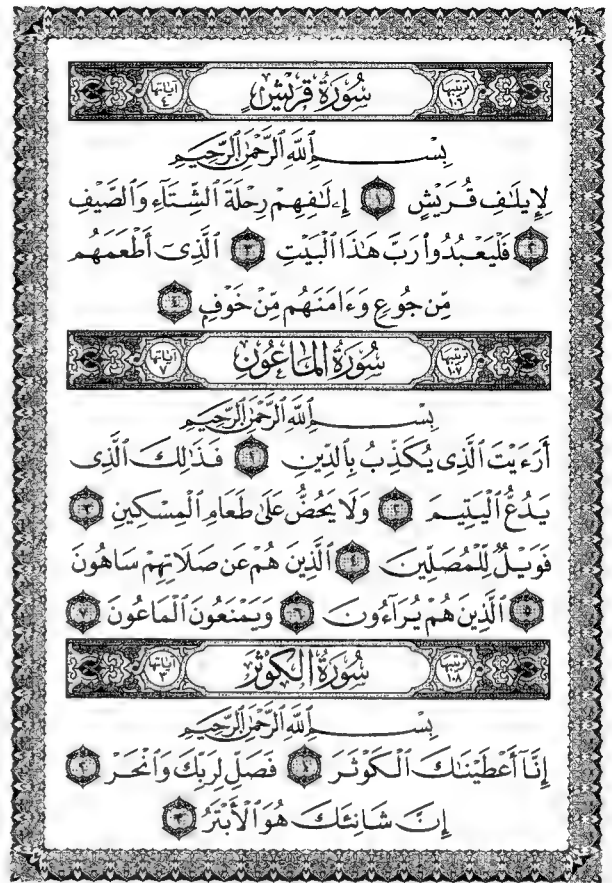 ترتيبها ١٠٦ سُورَةُ قُرَيْشٍ آياتها ٤
بِسْمِ ٱللَّهِ ٱلرَّحْمَٰنِ ٱلرَّحِيمِ
لِإِيلَٰفِ قُرَيْشٍ ١ إِۦلَٰفِهِمْ رِحْلَةَ ٱلشِّتَآءِ وَٱلصَّيْفِ
٢ فَلْيَعْبُدُوا۟ رَبَّ هَٰذَا ٱلْبَيْتِ ٣ ٱلَّذِىٓ أَطْعَمَهُم
مِّن جُوعٍ وَءَامَنَهُم مِّنْ خَوْفٍۭ ٤
ترتيبها ١٠٧ سُورَةُ المَاعُونِ آياتها ٧
بِسْمِ ٱللَّهِ ٱلرَّحْمَٰنِ ٱلرَّحِيمِ
أَرَءَيْتَ ٱلَّذِى يُكَذِّبُ بِٱلدِّينِ ١ فَذَٰلِكَ ٱلَّذِى
يَدُعُّ ٱلْيَتِيمَ ٢ وَلَا يَحُضُّ عَلَىٰ طَعَامِ ٱلْمِسْكِينِ ٣
فَوَيْلٌ لِّلْمُصَلِّينَ ٤ ٱلَّذِينَ هُمْ عَن صَلَاتِهِمْ سَاهُونَ
٥ ٱلَّذِينَ هُمْ يُرَآءُونَ ٦ وَيَمْنَعُونَ ٱلْمَاعُونَ ٧
ترتيبها ١٠٨ سُورَةُ الكَوْثَرَ آياتها ٣
بِسْمِ ٱللَّهِ ٱلرَّحْمَٰنِ ٱلرَّحِيمِ
إِنَّآ أَعْطَيْنَٰكَ ٱلْكَوْثَرَ ١ فَصَلِّ لِرَبِّكَ وَٱنْحَرْ ٢
إِنَّ شَانِئَكَ هُوَ ٱلْأَبْتَرُ ٣